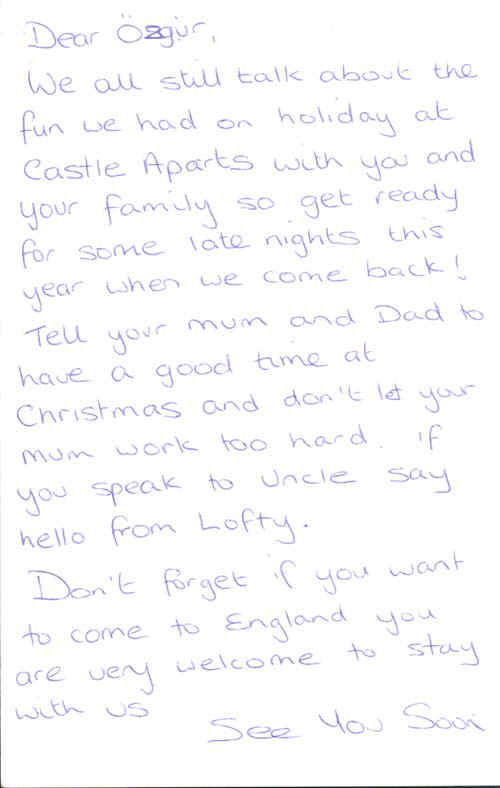 Dear Özgür,
We all still talk about the
fun we had on holiday at
Castle Aparts with you and
your family so get ready
for some late nights this
year when we come back!
Tell your mum and Dad to
have a good time at
Christmas and don't let your
mum work too hard. If
you speak to Uncle say
hello from Lofty.
Don't forget if you want
to come to England you
are very welcome to stay
with us
See You Soon